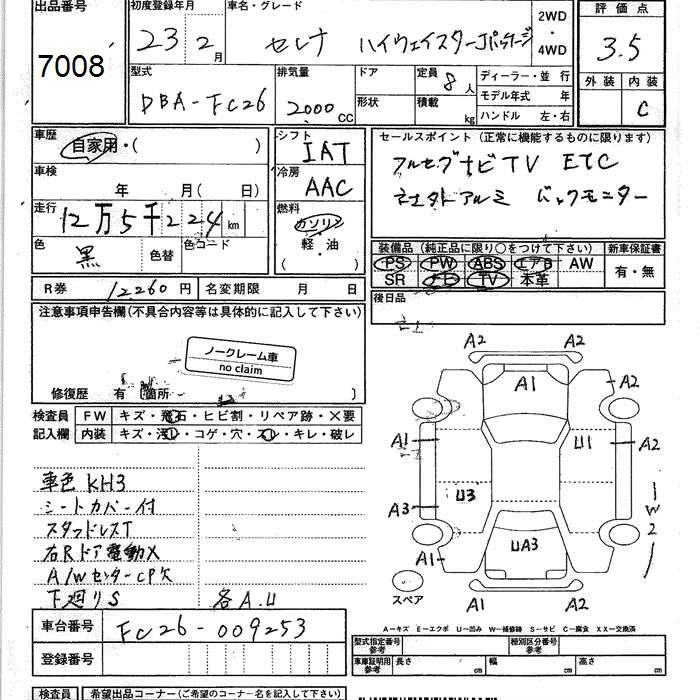 出品番号
7008
初度登録年月
23 2月
車名・グレード
セレナ ハイウェイスターJパッケージ
2WD
・
4WD
評価点
3.5
外装 内装
C
型式
DBA-FC26
排気量
2000 CC
ドア
形状
定員 8人
積載 kg
ディーラー・並行
モデル年式 年
ハンドル 左・右
車歴
自家用・( )
車検
年 月( 日)
走行
12万5千224 km
色
黒
色替
色コード
シフト
IAT
冷房
AAC
燃料
ガソリン
軽・油
( )
セールスポイント (正常に機能するものに限ります)
フルセグナビTV ETC
社外アルミ バックモニター
装備品 (純正品に限り○をつけて下さい)
PS PW ABS エアB AW
SR ナビ TV 本革
新車保証書
有・無
R券 12260円
名変期限 月 日
後日品
注意事項申告欄(不具合内容等は具体的に記入して下さい)
ノークレーム車
no claim
修復歴 有 箇所
検査員
記入欄
FW キズ・飛石・ヒビ割・リペア跡・×要
内装 キズ・汚レ・コゲ・穴・スレ・キレ・破レ
車色 KH3
シートカバー付
スタッドレスT
右Rドア電動X
A/WセンターCP欠
下廻りS 各A.U
車台番号 FC26-009253
登録番号
A2 A2
A1 A2
A1 U1 A2
A3 U3
W2
A1 UA3
スペア
A1 A2
A-キズ E-エクボ U-凹み W-補修跡 S-サビ C-腐食 XX-交換済
型式指定番号
参考
種別区分番号
参考
車庫証明用
参考
長さ cm 幅 cm 高さ cm
検査員
希望出品コーナー(ご希望のコーナー名を記入して下さい)